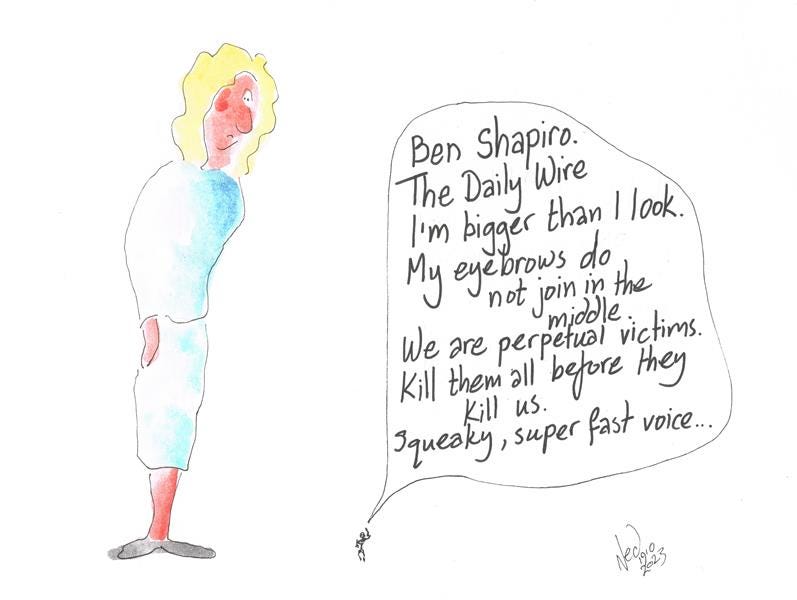 Ben Shapiro.
The Daily Wire
I'm bigger than I look.
My eyebrows do
not join in the
middle.
We are perpetual victims.
Kill them all before they
Kill us.
Squeaky, super fast voice...
2023